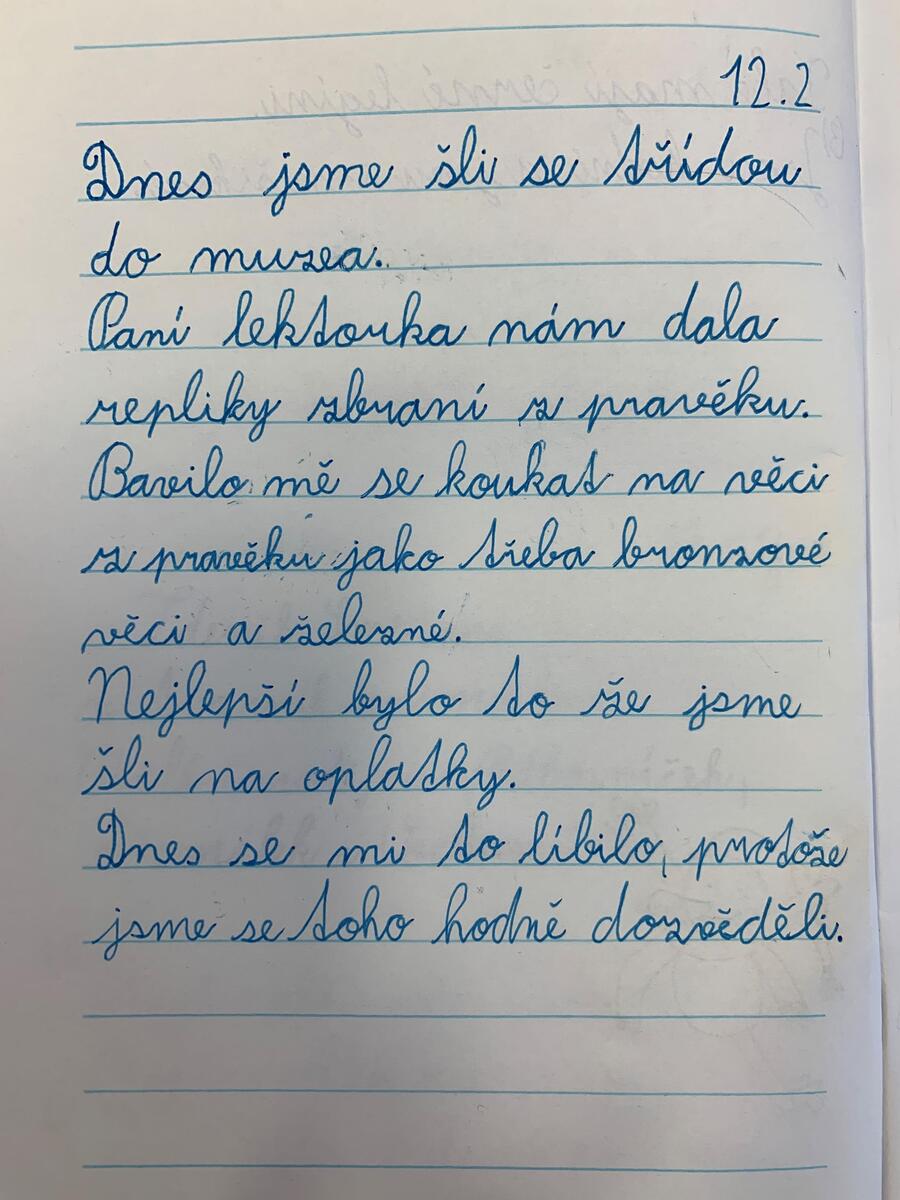 12.2
Dnes jsme šli se třídou
do muzea.
Paní lektorka nám dala
repliky zbraní z pravěku.
Bavilo mě se koukat na věci
z pravěku jako třeba bronzové
věci a železné.
Nejlepší bylo to že jsme
šli na oplatky.
Dnes se mi to líbilo, protože
jsme se toho hodně dozvěděli.